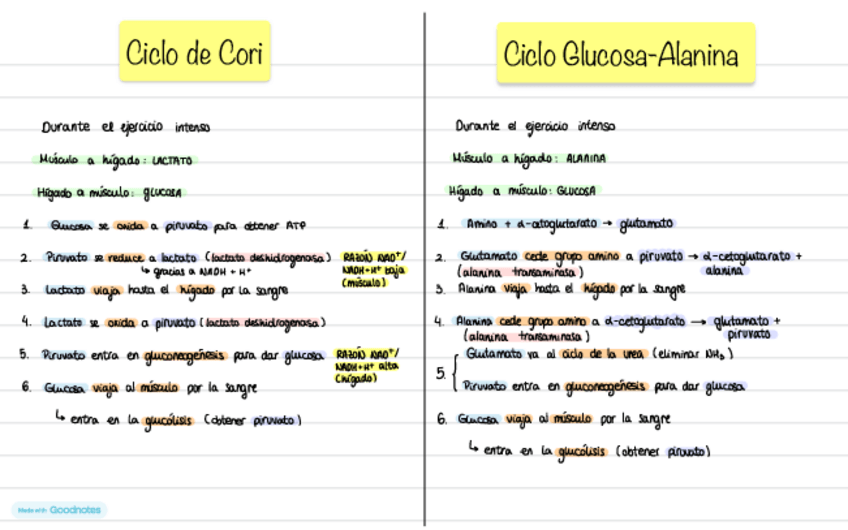 Ciclo de Cori
Durante el ejercicio intenso
Músculo a hígado: LACTATO
Hígado a músculo: GLUCOSA
1. Glucosa se oxida a piruvato para obtener ATP
2. Piruvato se reduce a lactato (lactato deshidrogenasa)
↳ gracias a NADH + H⁺
RAZÓN NAD⁺/
NADH+H⁺ baja
(músculo)
3. Lactato viaja hasta el hígado por la sangre
4. Lactato se oxida a piruvato (lactato deshidrogenasa)
5. Piruvato entra en gluconeogénesis para dar glucosa
RAZÓN NAD⁺/
NADH+H⁺ alta
(hígado)
6. Glucosa viaja al músculo por la sangre
↳ entra en la glucólisis (obtener piruvato)
Made with Goodnotes
Ciclo Glucosa-Alanina
Durante el ejercicio intenso
Músculo a hígado: ALANINA
Hígado a músculo: GLUCOSA
1. Amino + α-cetoglutarato → glutamato
2. Glutamato cede grupo amino a piruvato → α-cetoglutarato +
(alanina transaminasa) alanina
3. Alanina viaja hasta el hígado por la sangre
4. Alanina cede grupo amino a α-cetoglutarato → glutamato +
(alanina transaminasa) piruvato
5. Glutamato va al ciclo de la urea (eliminar NH₃)
Piruvato entra en gluconeogénesis para dar glucosa
6. Glucosa viaja al músculo por la sangre
↳ entra en la glucólisis (obtener piruvato)